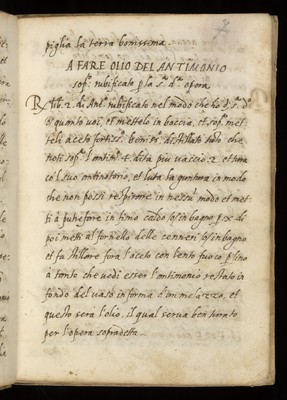 piglia la terra bonissima.
A FARE OLIO DEL ANTIMONIO
sopª rubificato p la sª dª opera
lib. 2. di Antº rubificato nel modo che
o quanto uoi, et mettelo in boccia, et sopª met
teli aceto fortissº ben distillato tanto che
noti sopª l'antimº 4. dita piu uaccio 2. et tura
co l suo antinotorio, et luta la giuntura in modo
che non possi respirare in nessuº modo et met
ti à putrefare in fimo caldo ò in bagno p x dì
poi metti al fornello delle cenneri ò in bagno
et fa stillare fora l'aceto con lento fuoco p fino
à tanto che uedi esser l'antimonio restato in
fondo del uaso in forma d'un melazzo, et
questo serà l'olio, il qual serua ben serrato
per l'opera sopradetta.